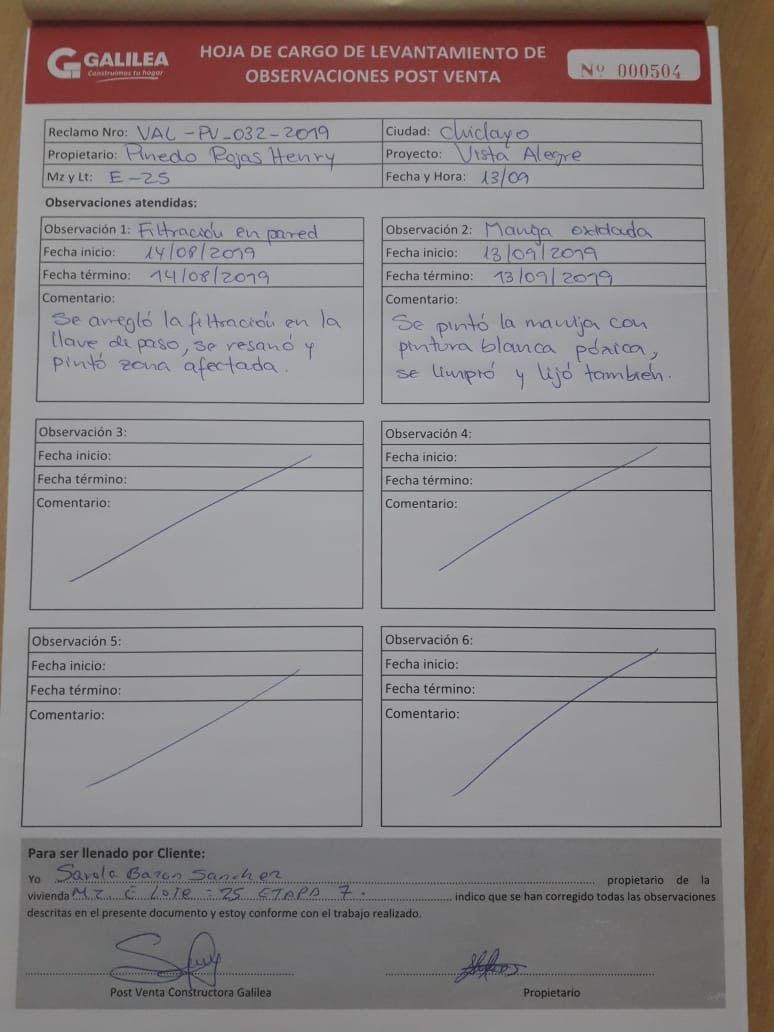 GALILEA
Construimos tu hogar
HOJA DE CARGO DE LEVANTAMIENTO DE
OBSERVACIONES POST VENTA
Nº 000504
Reclamo Nro: VAL-PV-032-2019
Ciudad: Chiclayo
Propietario: Pinedo Rojas Henry
Proyecto: Vista Alegre
Mz y Lt: E-25
Fecha y Hora: 13/09
Observaciones atendidas:
Observación 1: Filtración en pared
Fecha inicio: 14/08/2019
Fecha término: 14/08/2019
Comentario:
Se arregló la filtración en la
llave de paso, se resanó y
pintó zona afectada.
Observación 2: Manija oxidada
Fecha inicio: 13/09/2019
Fecha término: 13/09/2019
Comentario:
Se pintó la manija con
pintura blanca póxica,
se limpió y lijó también.
Observación 3:
Fecha inicio:
Fecha término:
Comentario:
Observación 4:
Fecha inicio:
Fecha término:
Comentario:
Observación 5:
Fecha inicio:
Fecha término:
Comentario:
Observación 6:
Fecha inicio:
Fecha término:
Comentario:
Para ser llenado por Cliente:
Yo Bazan Sanchez propietario de la
vivienda Mz. E LOTE = 25 ETAPA 7. indico que se han corregido todas las observaciones
descritas en el presente documento y estoy conforme con el trabajo realizado.
Post Venta Constructora Galilea
Propietario